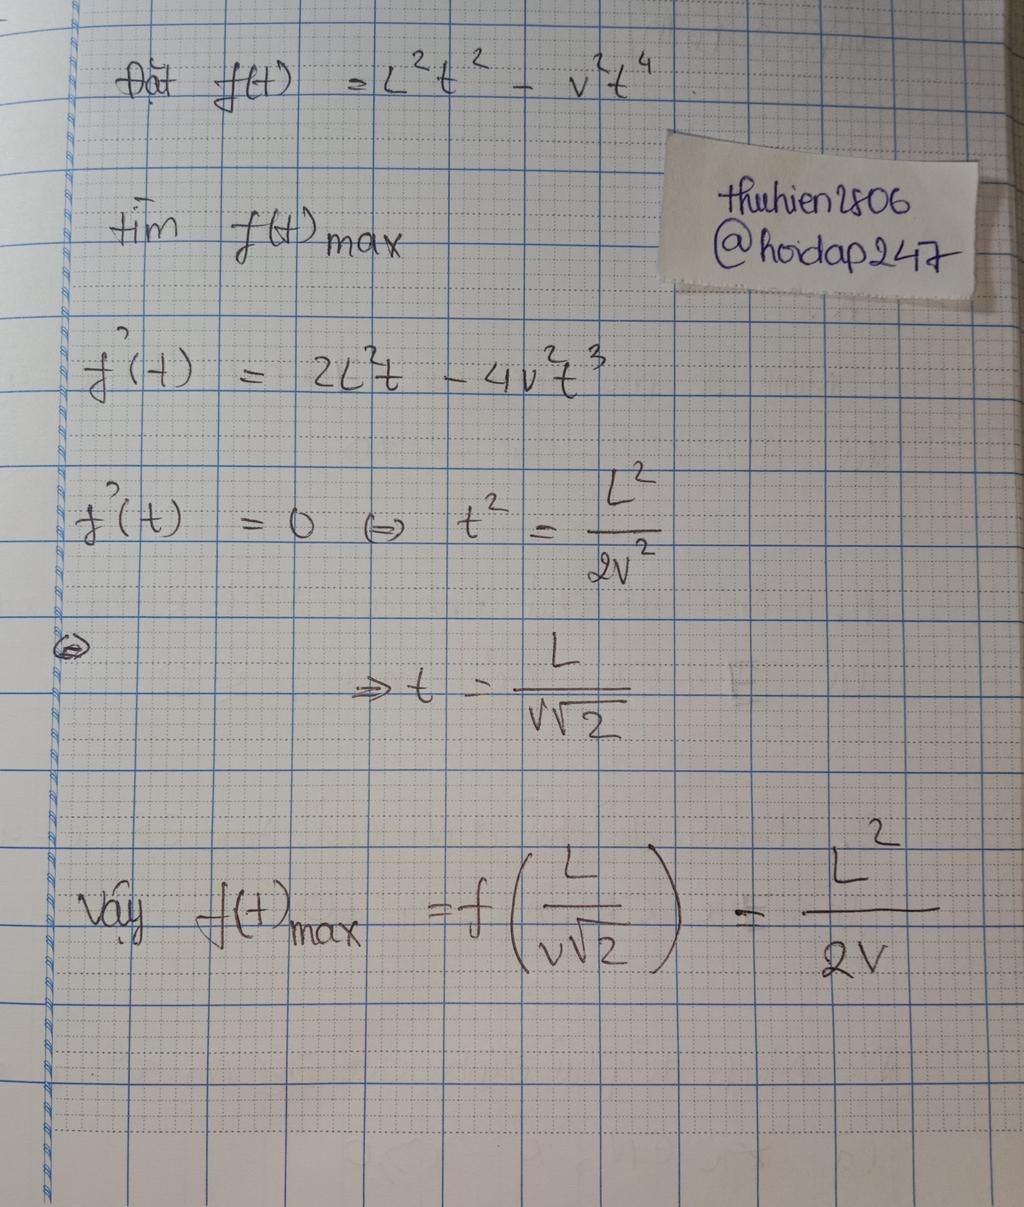 Đặt f(t) = L²t² - v²t⁴
thuhien2806
@hoidap247
tìm f(t)max
f'(t) = 2L²t - 4v²t³
f'(t) = 0 ⇔ t² = L²/2v²
⇔
⇒ t = L/v√2
Vậy f(t)max = f(L/v√2) = L²/2v